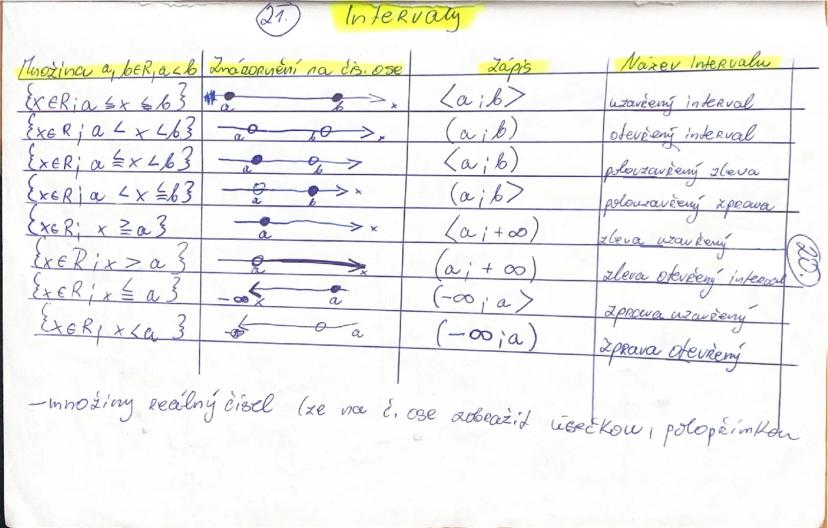 21. Intervaly
Množina a, b∈R, a<b Znázornění na čís. ose Zápis Název intervalu
{x∈R; a ≦ x ≦ b} a b x <a;b> uzavřený interval
{x∈R; a < x < b} a b x (a;b) otevřený interval
{x∈R; a ≦ x < b} a b <a;b) polouzavřený zleva
{x∈R; a < x ≦ b} a b x (a;b> polouzavřený zprava
{x∈R; x ≧ a} a x <a;+∞) zleva uzavřený
{x∈R; x > a} a x (a;+∞) zleva otevřený interval
{x∈R; x ≦ a} -∞ x a (-∞;a> zprava uzavřený
{x∈R; x < a} -∞ a (-∞;a) zprava otevřený
-množiny reálný čísel lze na č. ose zobrazit úsečkou, polopřímkou